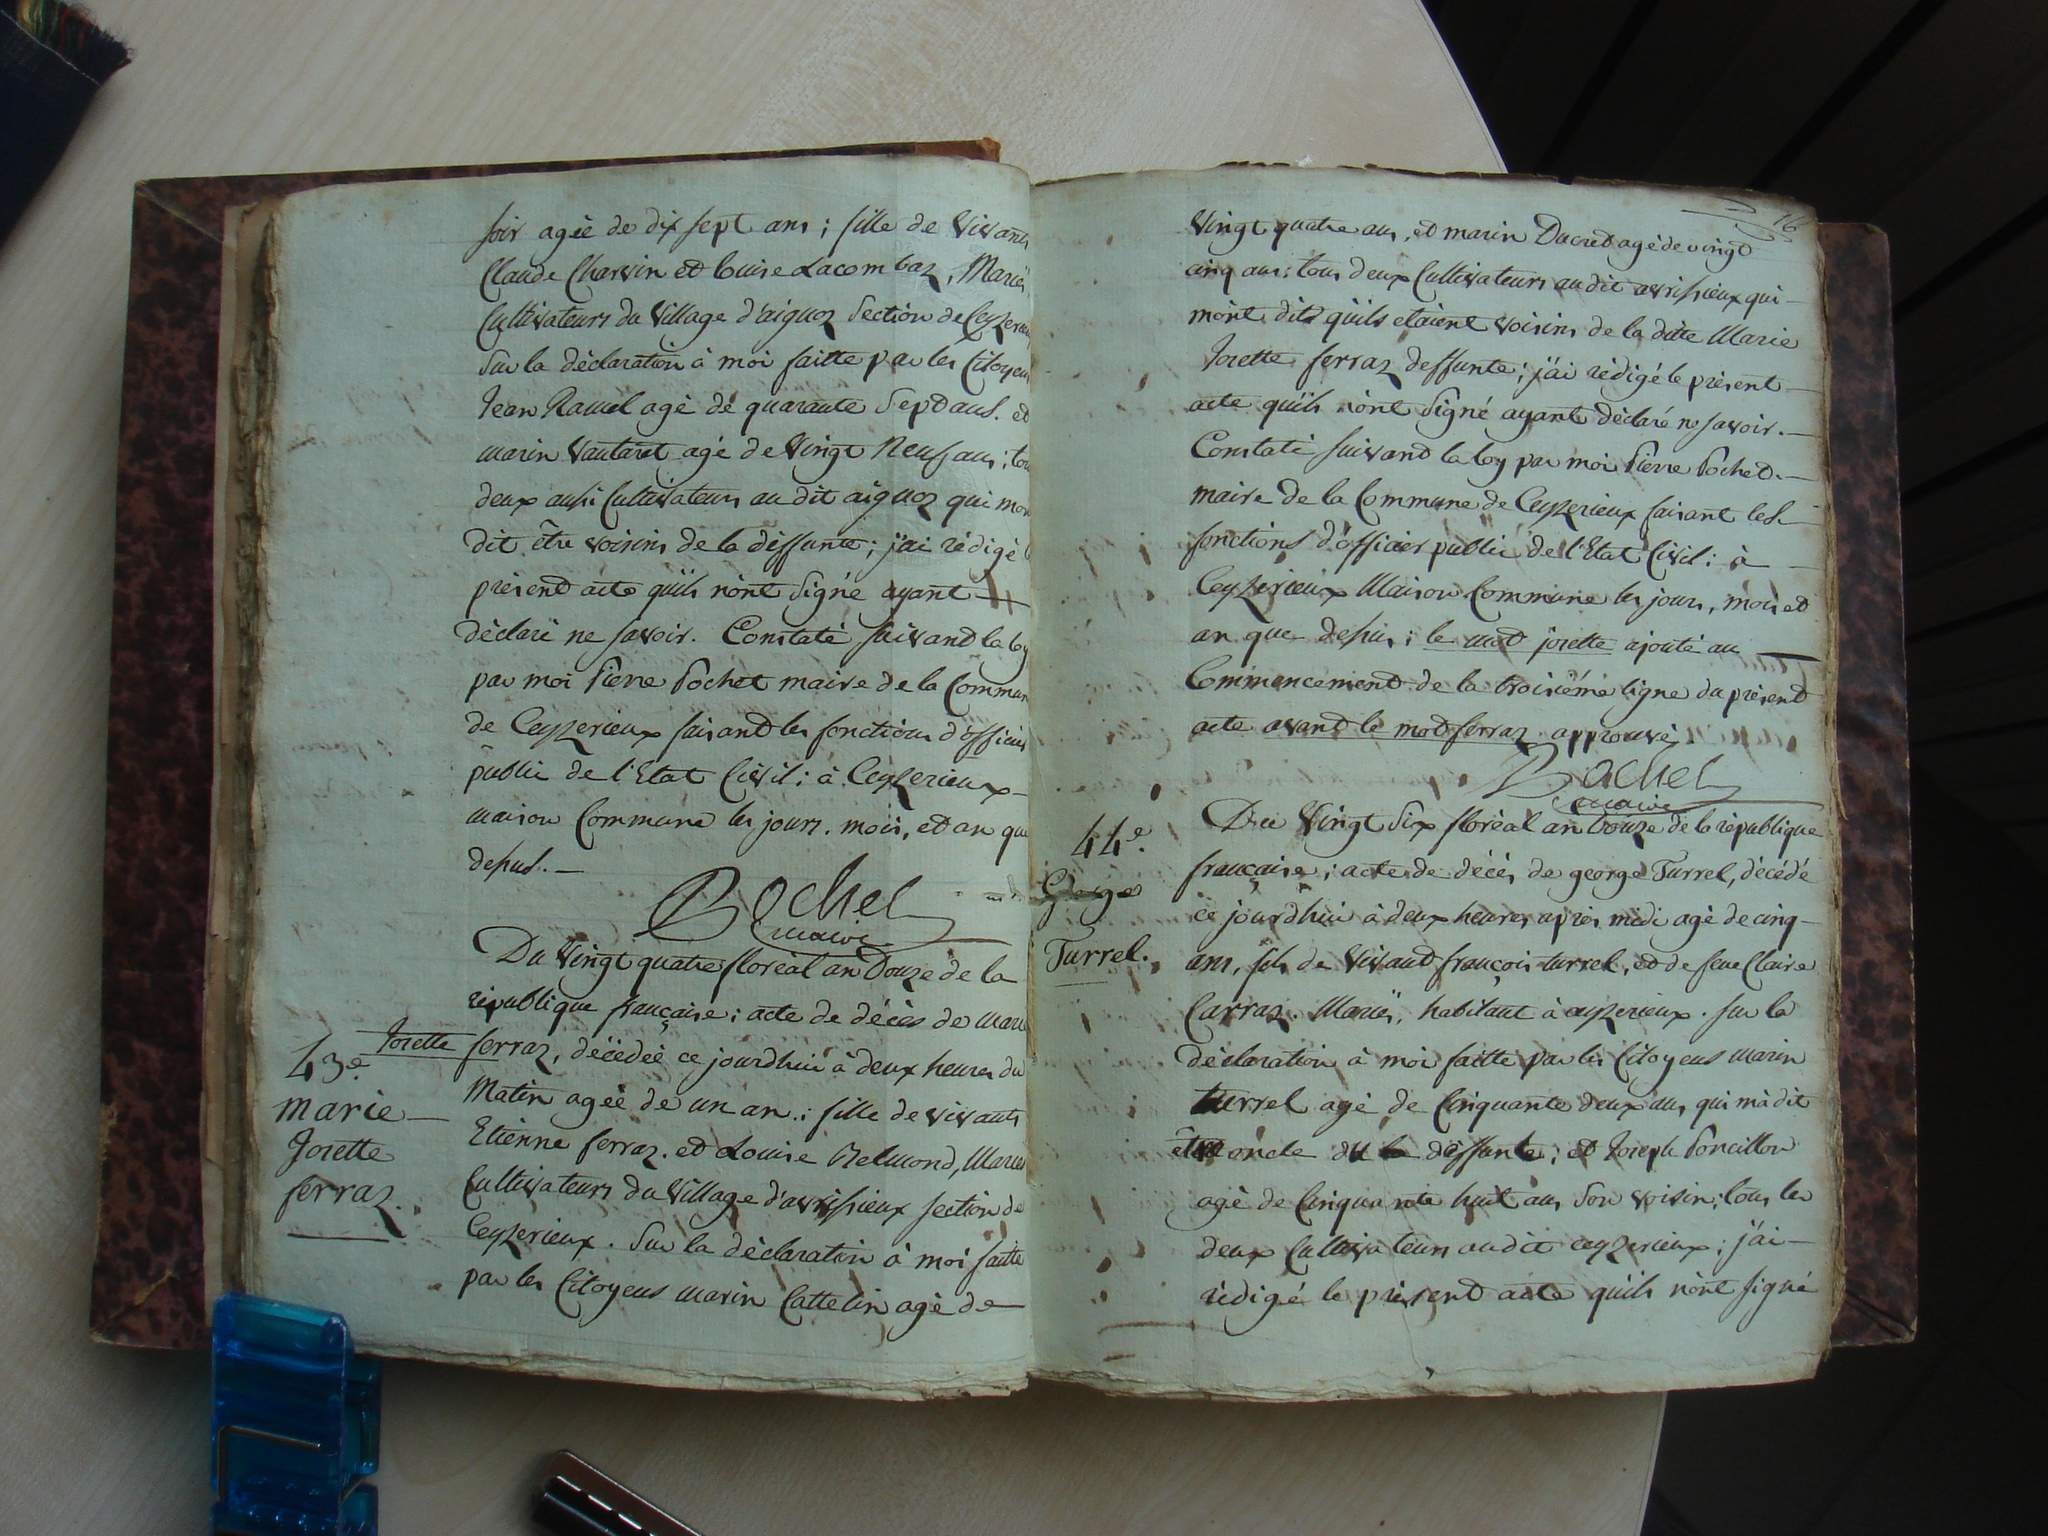 soir agée de dix sept ans ; fille de vivants
Claude Charvin et louise Lacombaz, Mariés,
Cultivateurs du village d'aiguoz Section de Ceyzerieux
Sur la déclaration à moi faitte par les Citoyens
Jean Ramel agé de quarante Sept ans. et
marin Vautaret agé de Vingt Neuf ans ; tous
deux aussi Cultivateurs au dit aiguoz qui mon
dit être voisins de la deffunte ; j'ai rédigé le
présent acte quils n'ont Signé ayant
déclaré ne savoir. Constaté suivant la loy
par moi Pierre Pochet maire de la Commune
de Ceyzerieux faisant les fonctions d'officier
public de l'Etat Civil : à Ceyzerieux
maison Commune les jours. mois, et an que
dessus.
Pochet
maire
Du vingt quatre floréal an Douze de la
république française ; acte de décès de marie
Josette ferraz, décédée ce jourdhui à deux heures du
43e
marie
Josette
ferraz.
Matin agée de un an ; fille de vivants
Etienne ferraz. et Louise Relmond, Mariés
Cultivateurs du village d'avrissieux section de
Ceyzerieux. Sur la déclaration à moi faitte
par les Citoyens marin Cattelin agé de
16
vingt quatre ans, et marin Ducret agé de vingt
cinq ans ; tous deux Cultivateurs au dit avrissieux qui
m'ont dit quils etaient voisins de la ditte Marie
Josette ferraz deffunte ; j'ai rédigé le présent
acte quils n'ont Signé ayant déclaré ne savoir.
Constaté suivant la loy par moi Pierre Pochet
maire de la Commune de Ceyzerieux faisant les
fonctions d'officier public de l'Etat Civil : à
Ceyzerieux Maison Commune les jours, mois et
an que dessus ; le mot josette ajouté au
Commencement de la troisième ligne du présent
acte avant le mot ferraz approuvé.
Pochet
maire
44e.
George
Turrel.
Du Vingt Six floréal an Douze de la république
française ; acte de décès de george Turrel, décédé
ce jourdhui à deux heures après midi agé de cinq
ans, fils de vivant françois turrel, et de feue Claire
Carraz. Mariés, habitant à ceyzerieux. Sur la
déclaration à moi faitte par les Citoyens marin
turrel agé de Cinquante deux ans qui m'a dit
être oncle du deffunt ; et Joseph Poncillon
agé de Cinquante huit ans Son voisin ; tous les
deux Cultivateurs au dit ceyzerieux ; j'ai
rédigé le présent acte quils n'ont signé